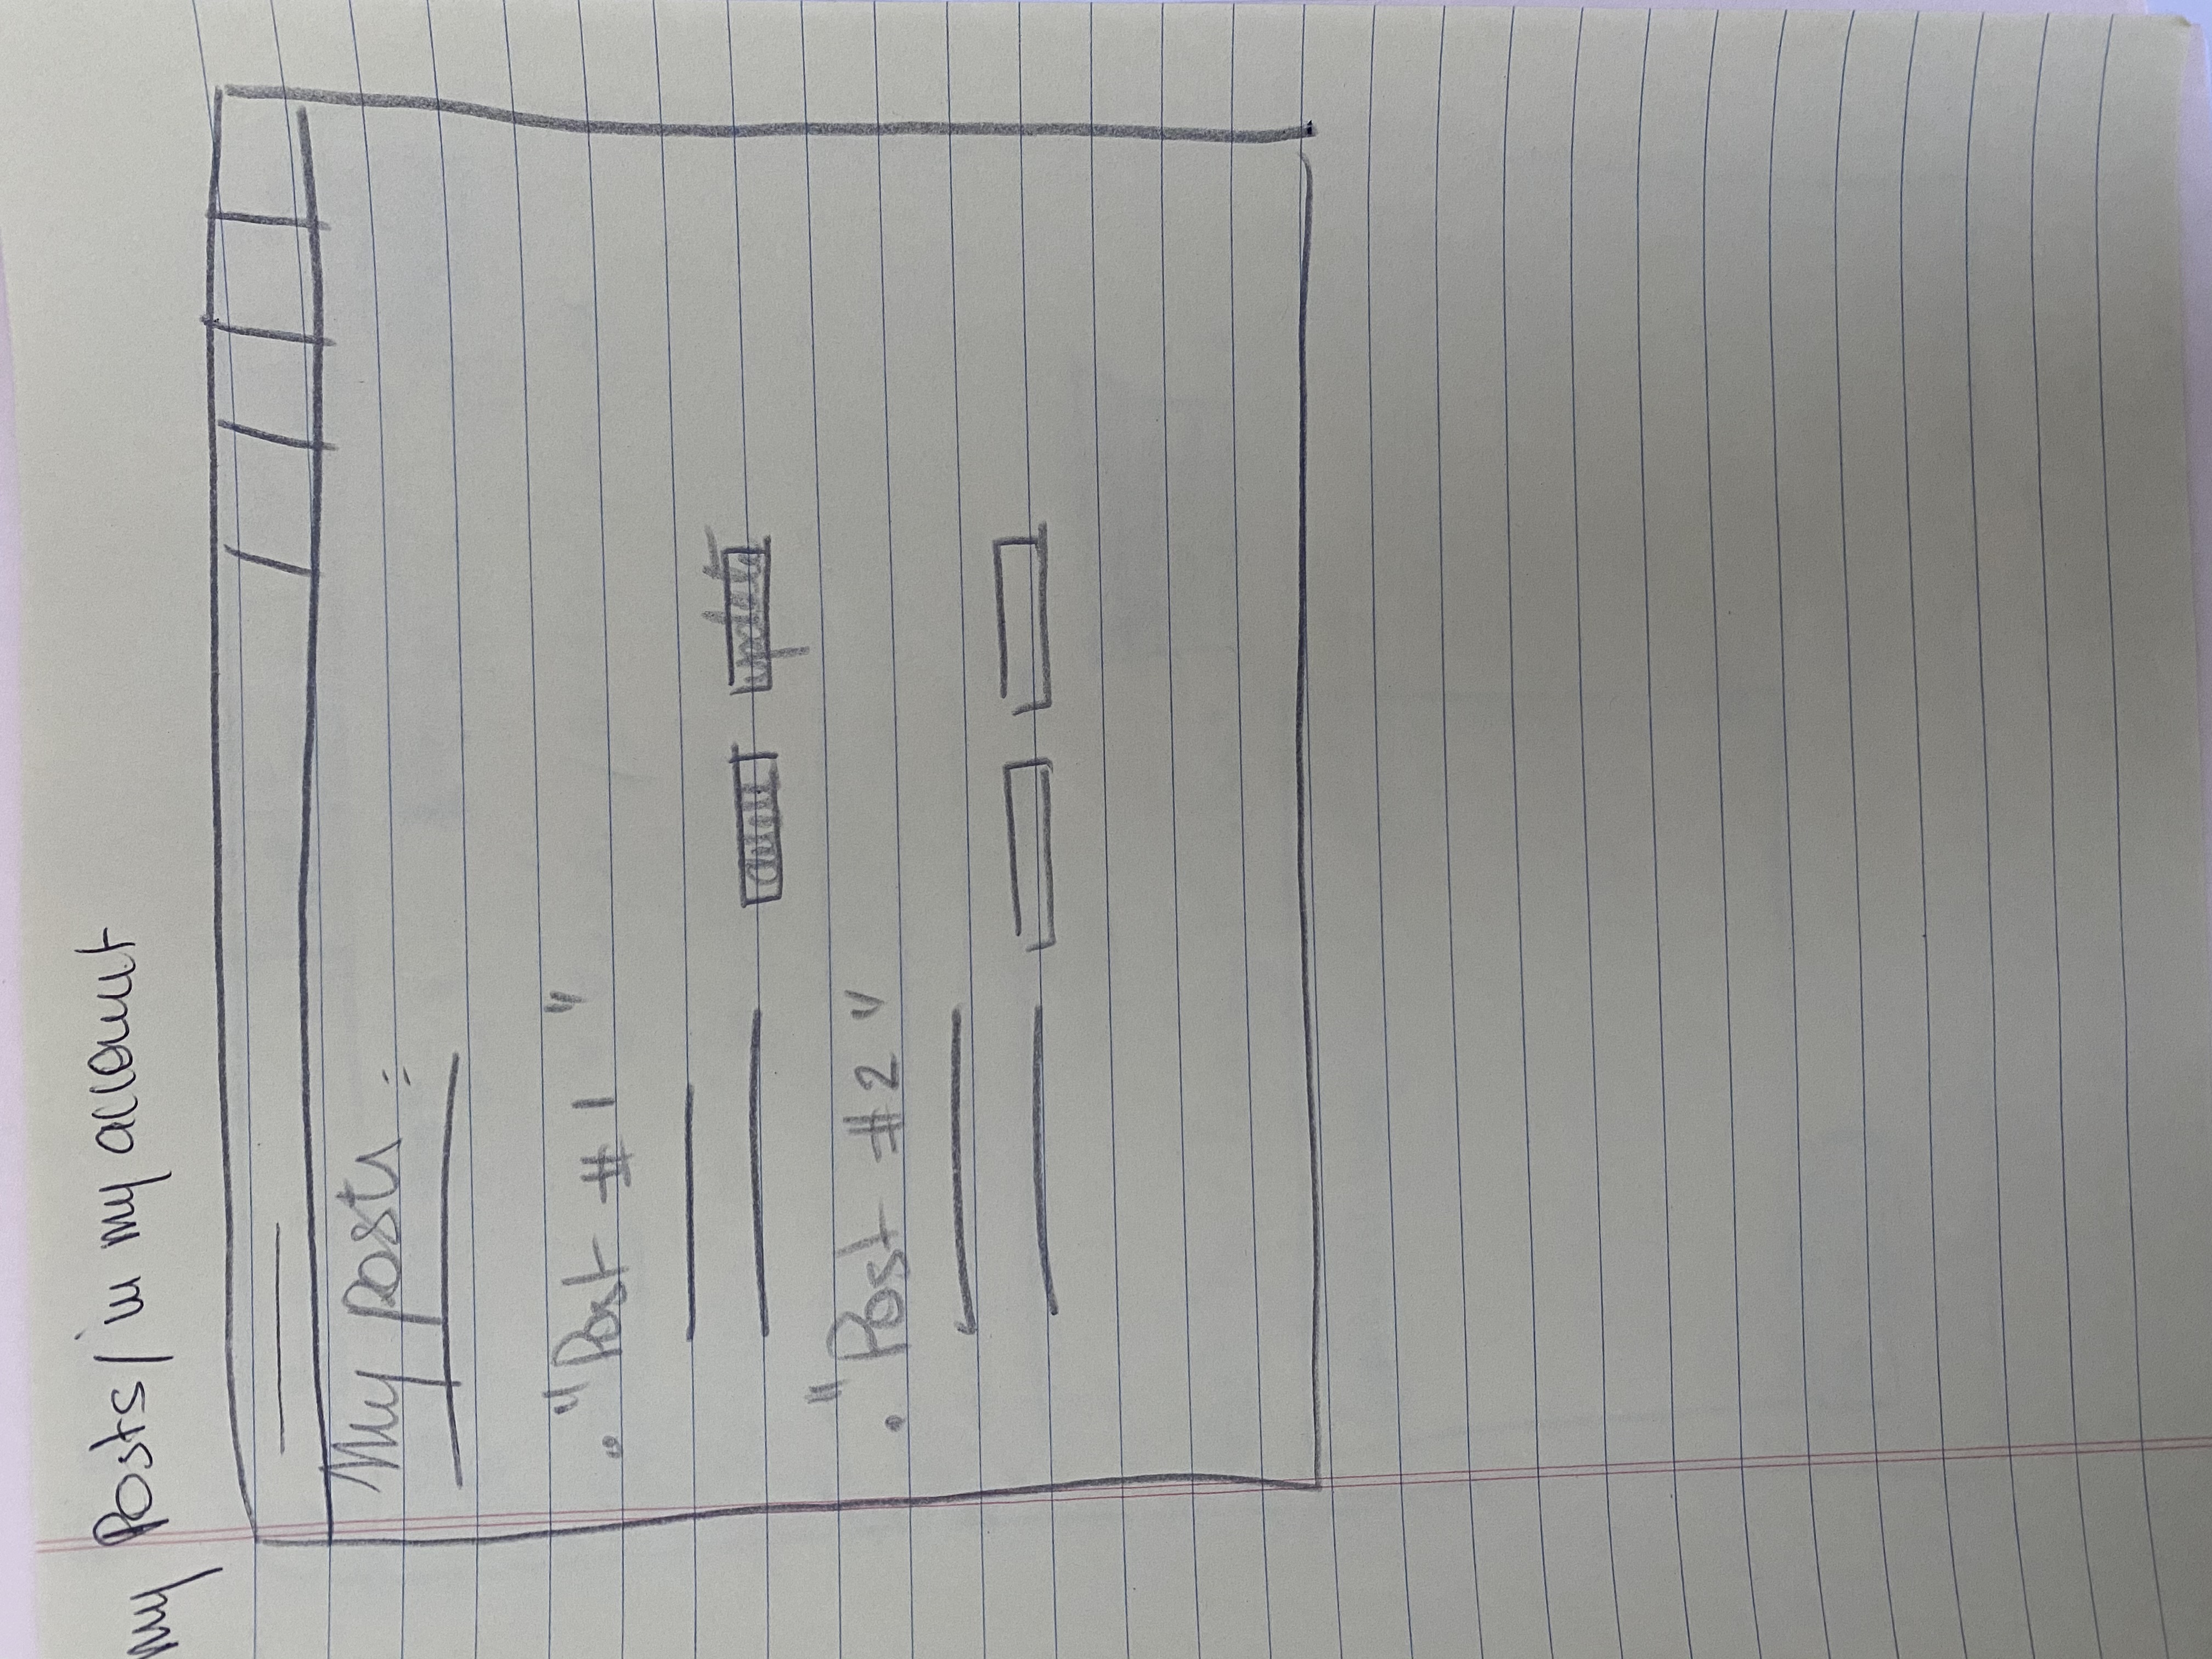 my Posts/in my account
My posts :
. "Post #1"
update
. "Post #2"